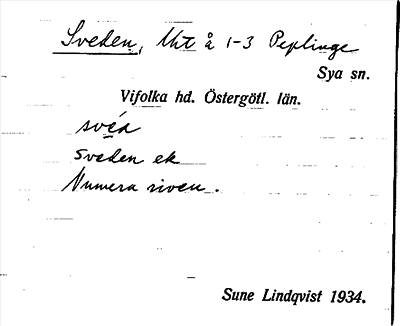 Sveden, Uht å 1-3 Peplinge
Sya sn.
Vifolka hd. Östergötl. län.
svéa
Sveden ek
Numera riven.
Sune Lindqvist 1934.